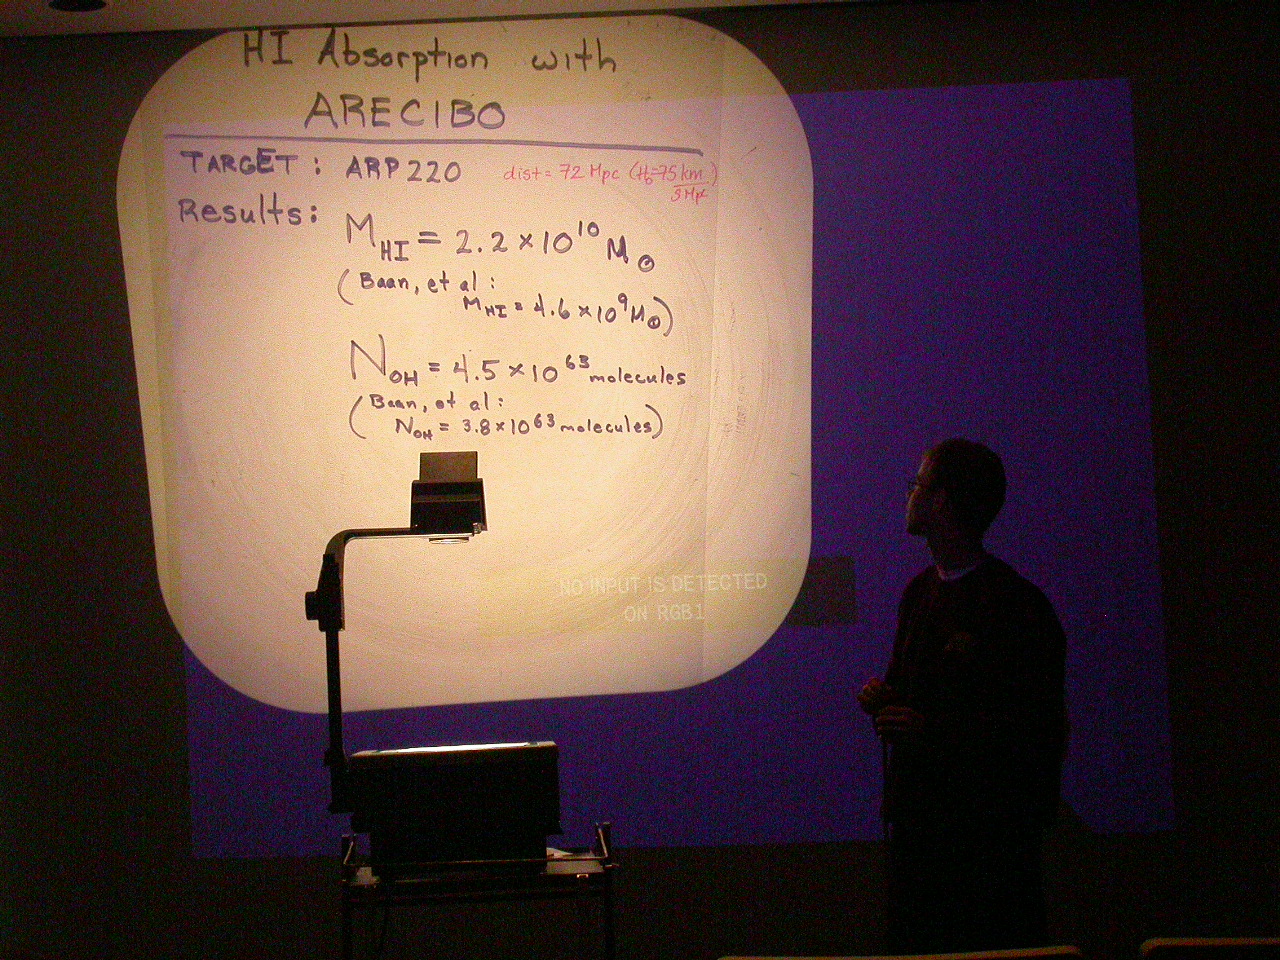 HI Absorption with
ARECIBO
TARGET: ARP 220 dist = 72 Mpc (H₀=75 km/s Mpc)
Results:
M_HI = 2.2 × 10¹⁰ M☉
(Baan, et al:
M_HI = 4.6 × 10⁹ M☉)
N_OH = 4.5 × 10⁶³ molecules
(Baan, et al:
N_OH = 3.8 × 10⁶³ molecules)
NO INPUT IS DETECTED
ON RGB1